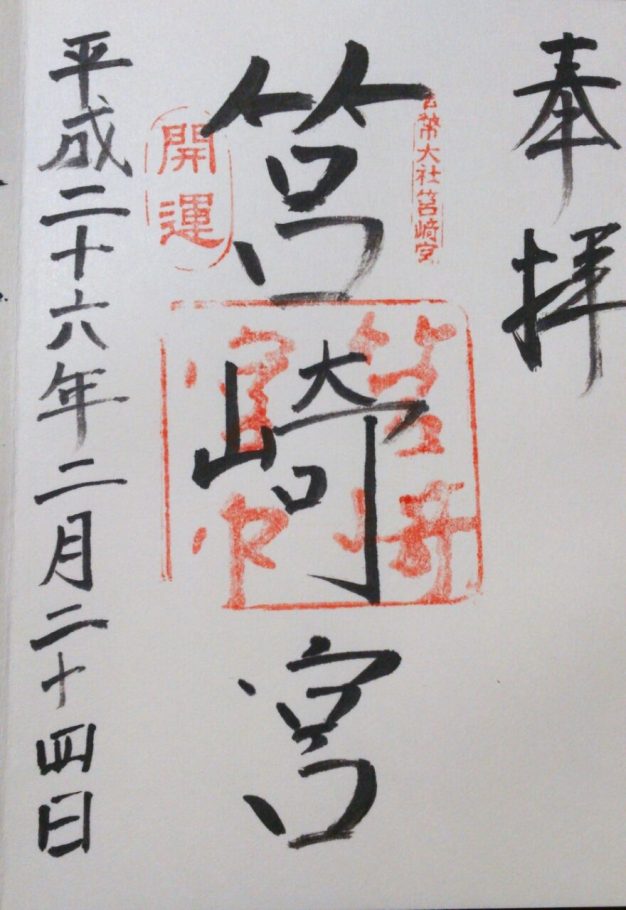 奉拝
官幣大社筥崎宮
筥崎宮
開運
筥崎
宮印
平成二十六年二月二十四日